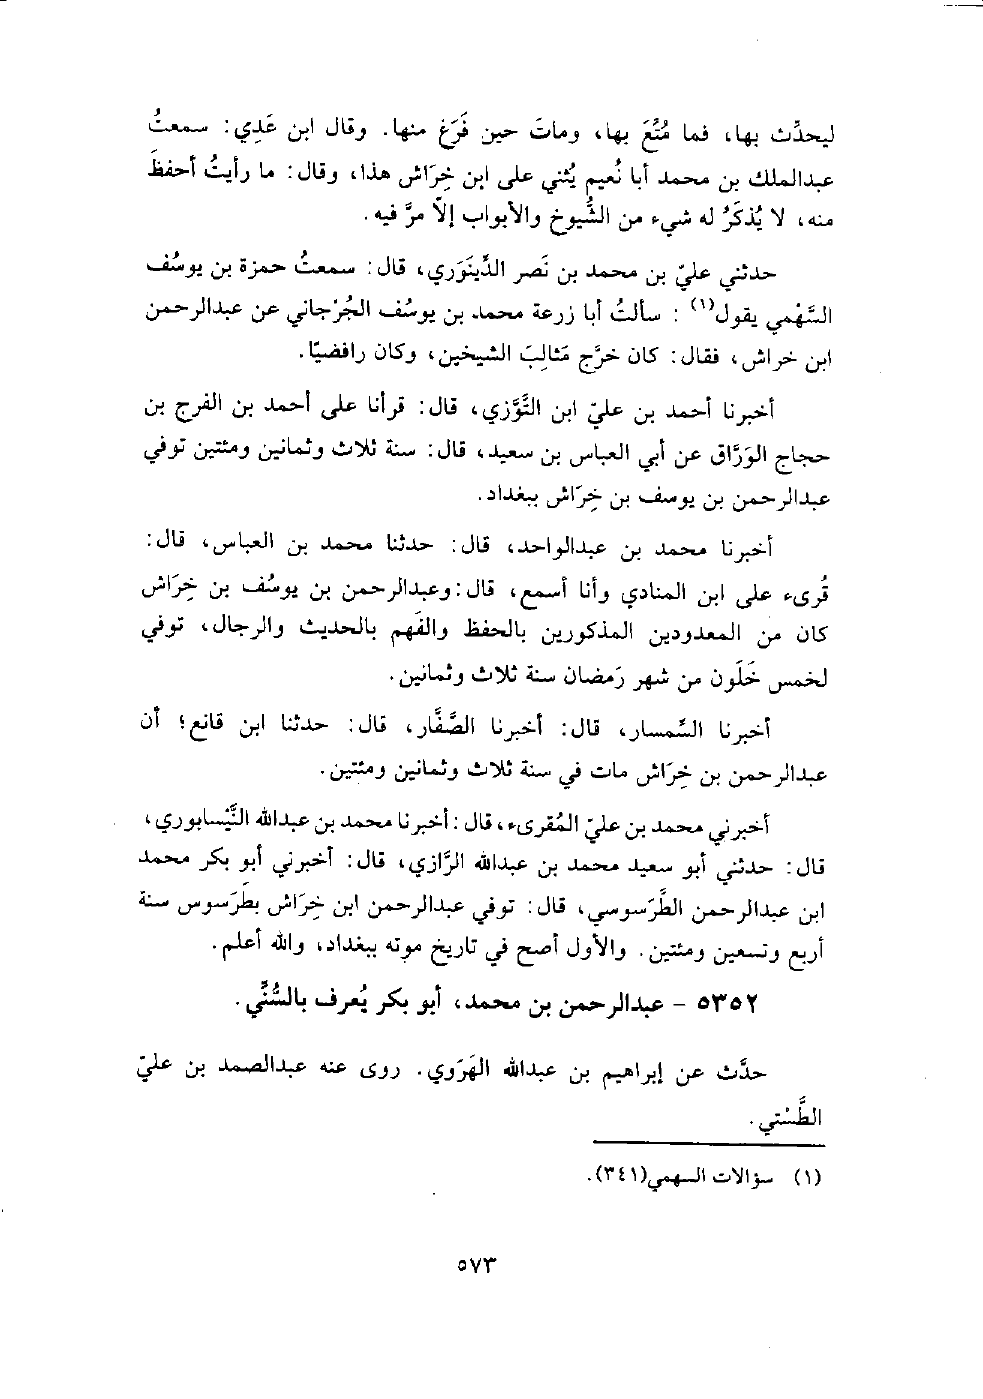 ليحدِّث بها، فما مُتِّعَ بها، وماتَ حين فَرَغ منها. وقال ابن عَدِي: سمعتُ
عبدالملك بن محمد أبا نُعيم يُثني على ابن خِرَاش هذا، وقال: ما رأيتُ أحفظَ
منه، لا يُذكَرُ له شيء من الشُّيوخ والأبواب إلاّ مرَّ فيه.
حدثني عليّ بن محمد بن نَصر الدِّينَوَري، قال: سمعتُ حمزة بن يوسُف
السَّهْمي يقول(١): سألتُ أبا زرعة محمد بن يوسُف الجُرْجاني عن عبدالرحمن
ابن خراش، فقال: كان خرَّج مَثالِبَ الشيخين، وكان رافضيًا.
أخبرنا أحمد بن عليّ ابن التَّوَّزي، قال: قرأنا على أحمد بن الفرج بن
حجاج الوَرَّاق عن أبي العباس بن سعيد، قال: سنة ثلاث وثمانين ومئتين توفي
عبدالرحمن بن يوسف بن خِرَاش ببغداد.
أخبرنا محمد بن عبدالواحد، قال: حدثنا محمد بن العباس، قال:
قُرىء على ابن المنادي وأنا أسمع، قال: وعبدالرحمن بن يوسُف بن خِرَاش
كان من المعدودين المذكورين بالحفظ والفَهم بالحديث والرجال، توفي
لخمس خَلَون من شهر رَمضان سنة ثلاث وثمانين.
أخبرنا السِّمسار، قال: أخبرنا الصَّفَّار، قال: حدثنا ابن قانع؛ أن
عبدالرحمن بن خِرَاش مات في سنة ثلاث وثمانين ومئتين.
أخبرني محمد بن عليّ المُقرىء، قال: أخبرنا محمد بن عبدالله النَّيْسابوري،
قال: حدثني أبو سعيد محمد بن عبدالله الرَّازي، قال: أخبرني أبو بكر محمد
ابن عبدالرحمن الطَّرَسوسي، قال: توفي عبدالرحمن ابن خِرَاش بطَرَسوس سنة
أربع وتسعين ومئتين. والأول أصح في تاريخ موته ببغداد، والله أعلم.
٥٣٥٢ - عبدالرحمن بن محمد، أبو بكر يُعرف بالسُّنِّي.
حدَّث عن إبراهيم بن عبدالله الهَرَوي. روى عنه عبدالصمد بن عليّ
الطَّسْتي.
(١) سؤالات السهمي (٣٤١).
٥٧٣